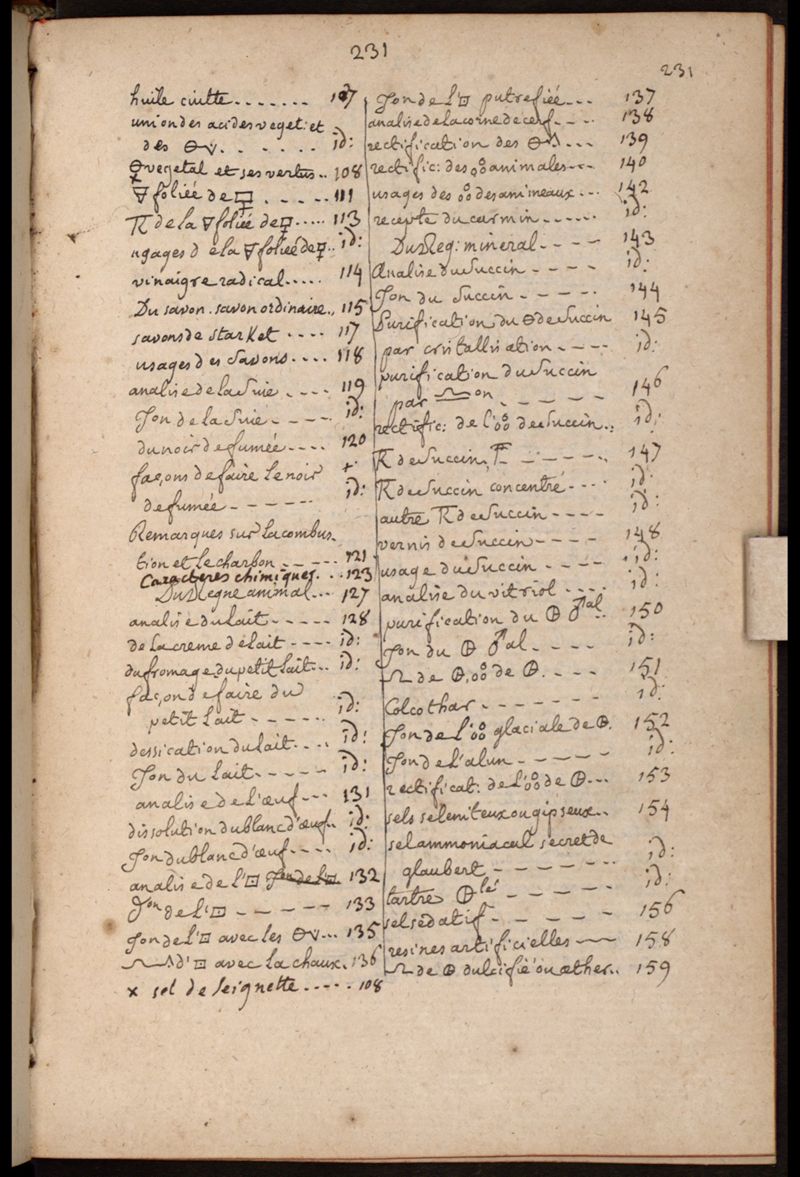 231
231
huile cuitte . . . . . . . 107
union des acides veget: et
des 🜔🜄 . . . . . . id:
🜔 vegetal et ses vertus . . 108
🜃 foliée de 🜿 . . . . . 111
de la 🜃 foliée de 🜿 . . . . . 113
usages de la 🜃 foliée de 🜿 . . id:
vinaigre radical . . . . . 114
Du savon. savon ordinaire . . 115
savons de starKet . . . . 117
usages des savons . . . . 118
analise de la Suie . . . . 119
Jon de la Suie - - - - - id:
du noir de fumée . . . . 120
façons de faire le noir +
de fumée - - - - - - id:
Remarques sur la combus-
tion et le charbon - - - - - 121
Caracteres chimiques . . . 123
Du Regne animal . . . 127
analise du lait - - - - - 128
de la creme de lait - - - - id:
du fromage, du petit lait . . . id:
façon de faire du
petit lait - - - - - - id:
dessication du lait . . . . id:
Jon du lait - - - - - id:
analise de l'œuf - - - 131
dissolution du blanc d'œuf . . id:
Jon du blanc d'œuf - - - - id:
analise de l'🝕 Jon de l'🝕 132
Jon de l'🝕 - - - - - 133
Jon de l'🝕 avec les 🜔🜄 . . . 135
d'🝕 avec la chaux . 136
x sel de seignette . . . . . 108
Jon de l'🝕 putrefiée - - - 137
analise de la corne de cerf - - - 138
rectification des 🜔 . . . 139
rectific: des ꝏ animales - - - 140
usages des ꝏ des animeaux . . . 142
recepte du carmin - - - - - - id:
Du Reg: mineral - - - - 143
Analise du Succin - - - - id:
Jon du Succin - - - - - 144
Purification du 🜔 de Succin 145
par cristallisation - - - - id:
purification du Succin
par on - - - - - 146
rectific: de l'ꝏ de Succin . . id:
de Succin - - - - - - 147
de Succin concentré . . . id:
autre de Succin - - - - id:
vernis de Succin - - - - 148
usage du Succin - - - - id:
analise du vitriol . . . . id:
purification du 🜖 ♂al . . 150
Jon du 🜖 ♂al - - - - id:
de 🜖, ꝏ de 🜖 . - - - 151
Colcothar - - - - - - - id:
Jon de l'ꝏ glaciale de 🜖. 152
Jon de l'alun - - - - - - id:
rectificat: de l'ꝏ de 🜖 - - - 153
sels seleniteux ou gipseux . . 154
sel ammoniacal secret de
glaubert - - - - - - - id:
tartre 🜖lé - - - - - id:
sel sedatif - - - - - 156
resines artificielles - - 158
de 🜖 dulcifié ou æther . . 159